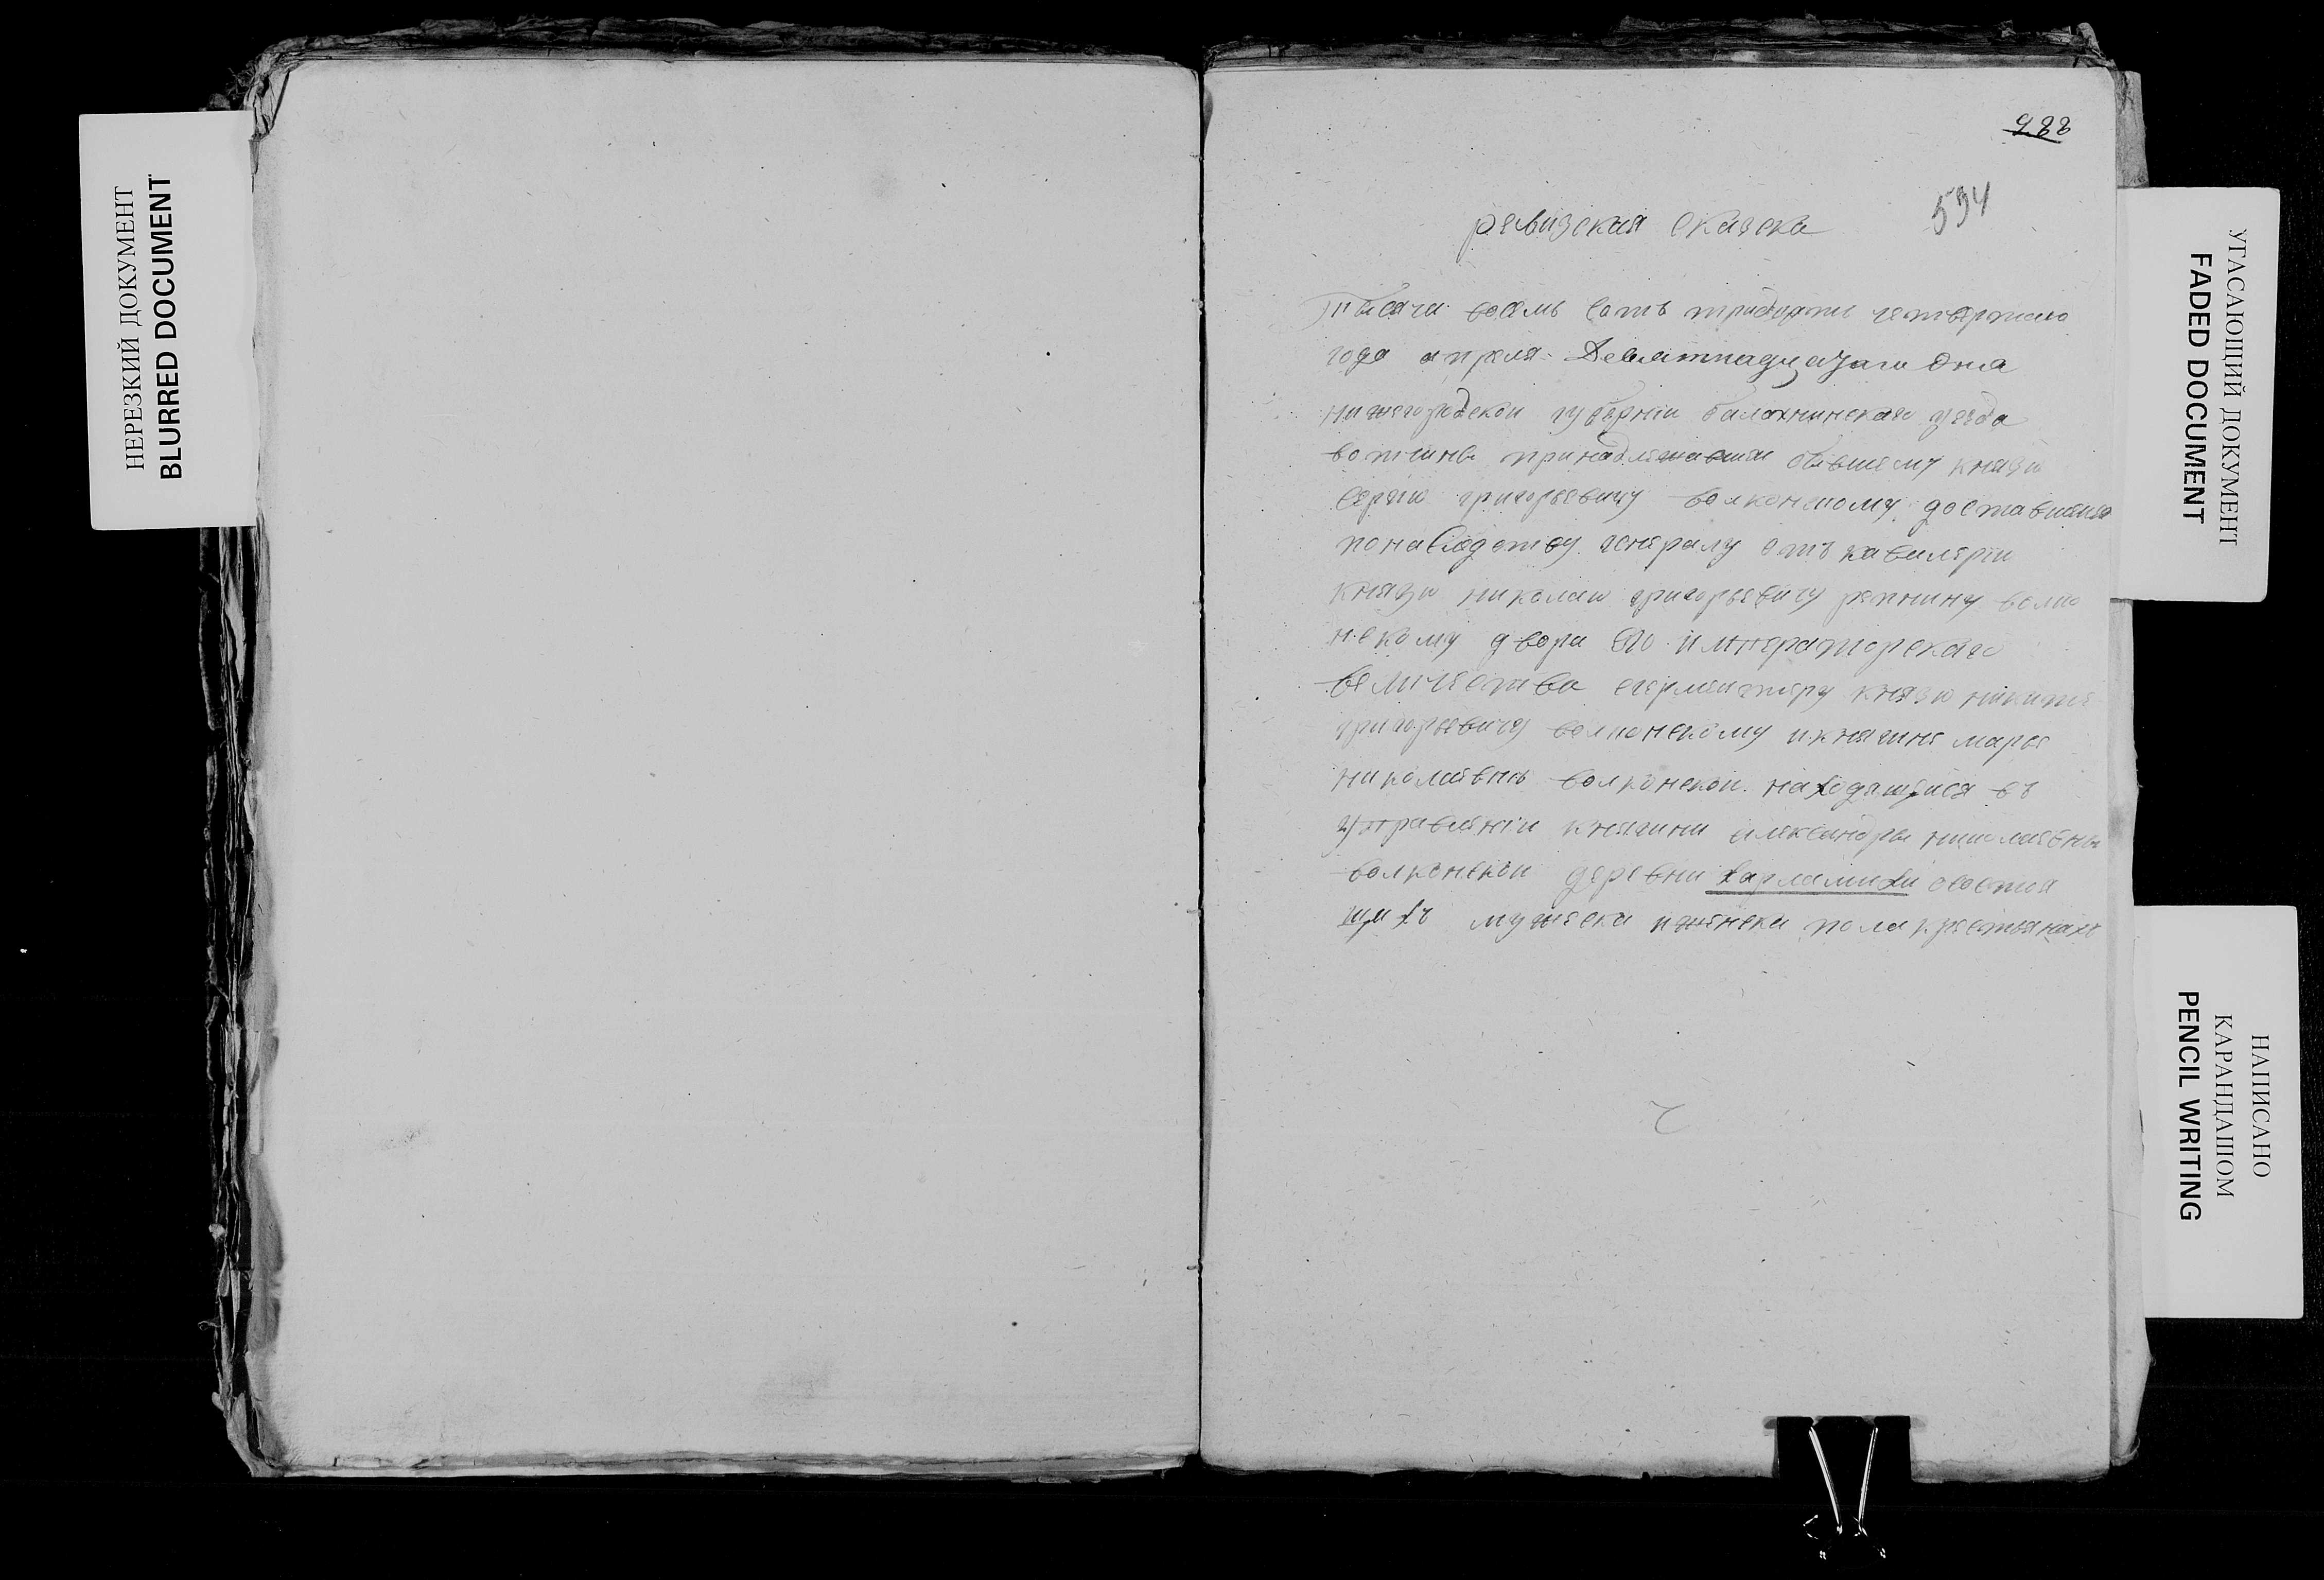 НЕРЕЗКИЙ ДОКУМЕНТ
BLURRED DOCUMENT
988
594
ревизская сказска
тысяча восемь сотъ тридцать четвертаго
года апреля Девятнадцатаго дня
нижегородской губернiи балохнинскаго уезда
вотчины принадлежавшей бывшему князю
сергiю григорьевичу волконскому доставшейся
понаследству генералу отъ кавалерiи
князю николаю григорьевичу репнину волко
нскому двора Его императорскаго
величества егермейстеру князю никите
григорьевичу волконскому и княгине марье
николаевне волконской находящейся въ
управленiи княгини александры николаевны
волконской деревни харламихи состоя
щихъ мужеска и женска пола крестьянахъ
УГАСАЮЩИЙ ДОКУМЕНТ
FADED DOCUMENT
НАПИСАНО
КАРАНДАШОМ
PENCIL WRITING